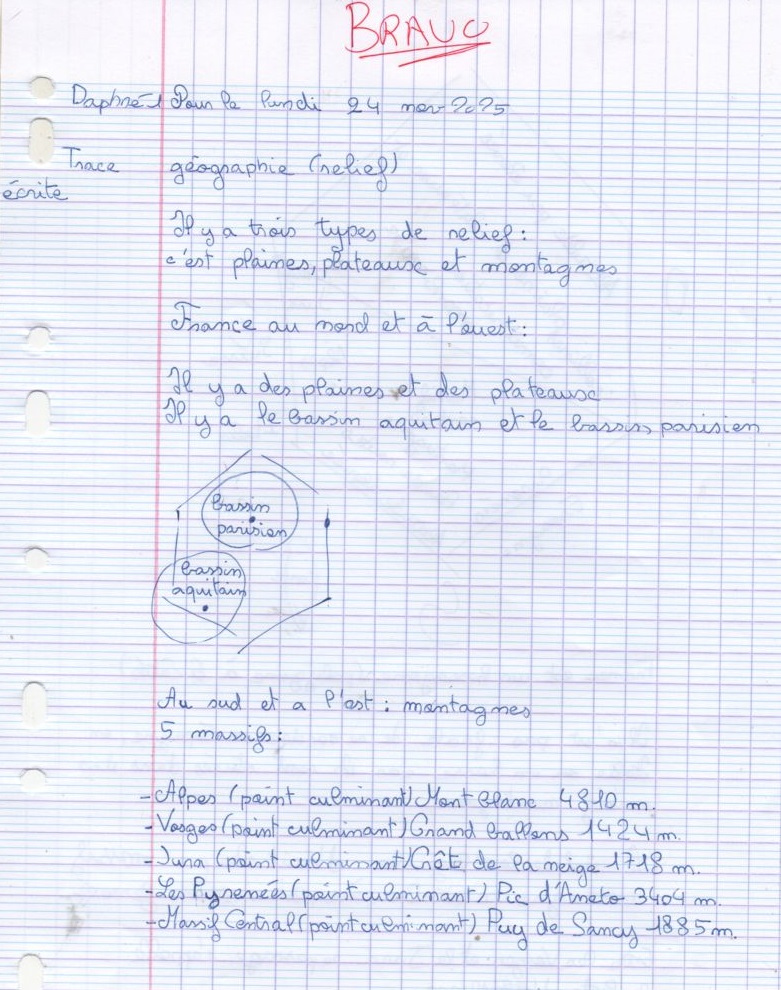 BRAVO
Daphné-1 Pour le lundi 24 nov 2025
Trace géographie (relief)
écrite
Il y a trois types de relief :
c'est plaines, plateaux et montagnes
France au nord et à l'ouest :
Il y a des plaines et des plateaux
Il y a le bassin aquitain et le bassin parisien
bassin
parisien
bassin
aquitain
Au sud et a l'est : montagnes
5 massifs :
-Alpes (point culminant) Mont blanc 4810 m.
-Vosges (point culminant) Grand ballons 1424 m.
-Jura (point culminant) Crêt de la neige 1718 m.
-Les Pyrenées (point culminant) Pic d'Aneto 3404 m.
-Massif Central (point culminant) Puy de Sancy 1885 m.